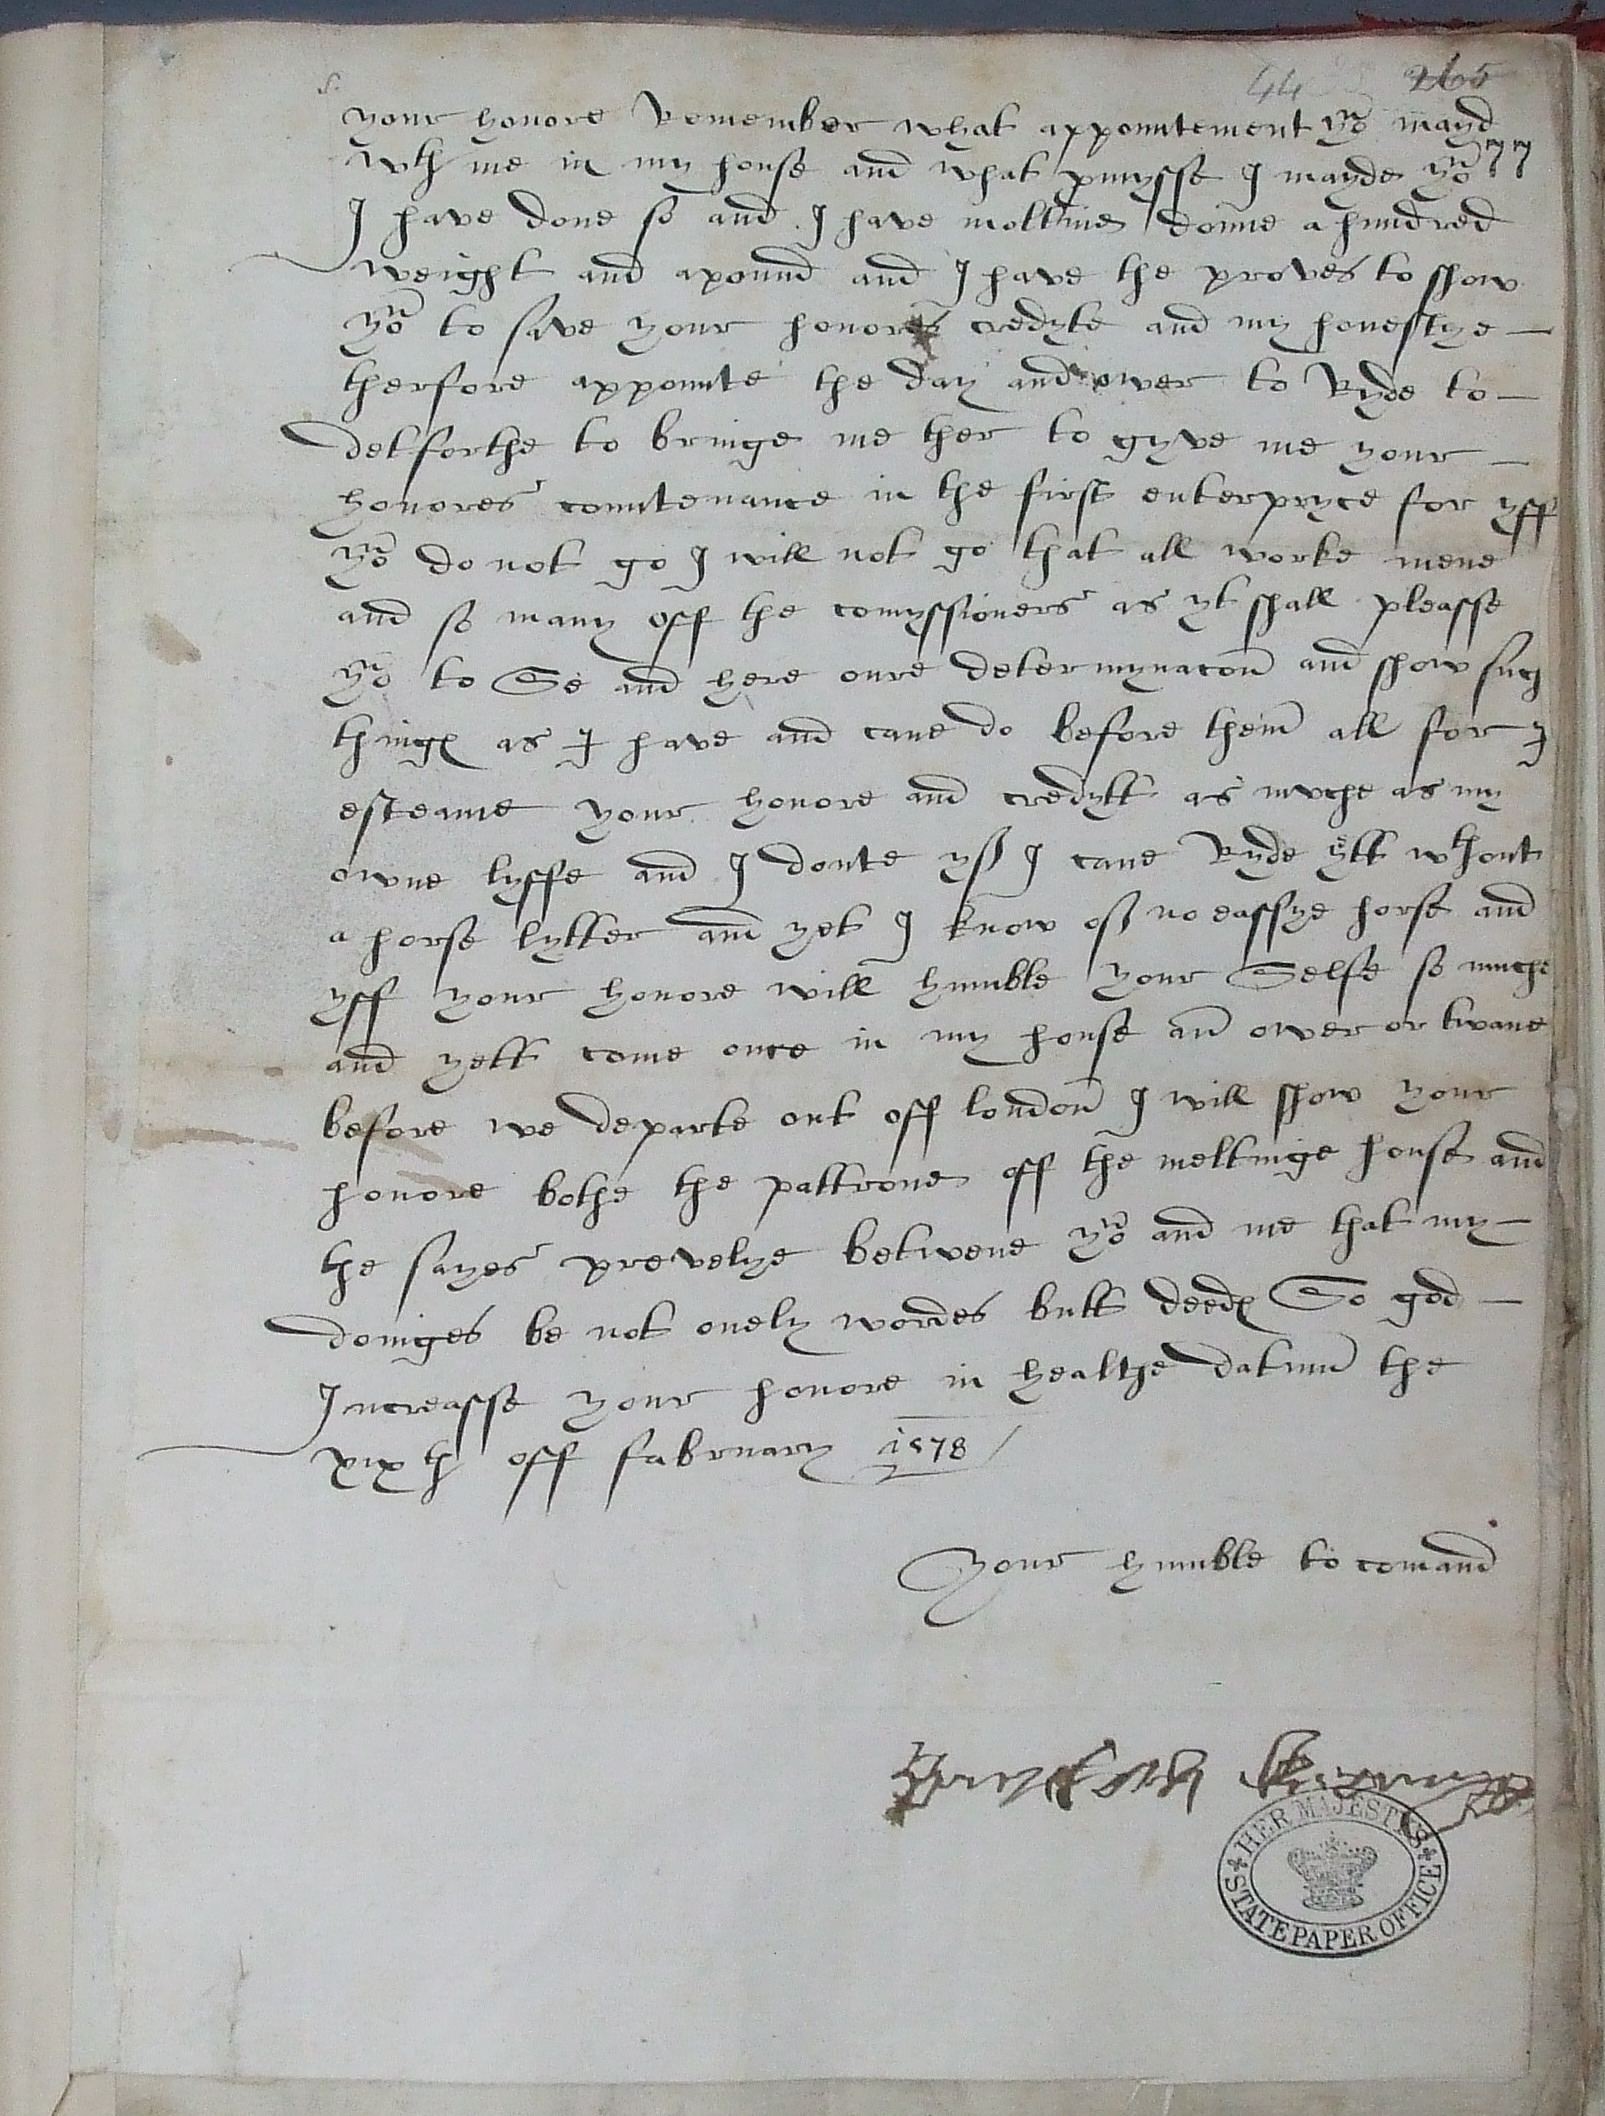 44 265
77
your honore Remember what appountement yo^u mayd
w^th me in my house and what p̱mysse I mayde yo^u
I have done so and I have moltine doune a hundred
weight and a pound and I have the proves to show
yo^u to save your honores credyte and my honestye –
therfore appounte the day and ower to Ryde to –
detforthe to bringe me ther to gyve me your –
honores countenance in the first enterpryce for yff
yo^u do not go I will not go that all worke mene
and so many off the comyssioners as yt shall pleasse
yo^u to Se and here oure determynacon and show such
things as I have and cane do before them all for I
esteame your honore and credytt as muche as my
owne lyffe and I doute yff I cane Ryde ytt w^thout
a horse lytter and yet I know off no eassye horse and
yff your honore will humble your Selfe so muche
and yett come once in my house an ower or twane
before we departe out off london I will show your
honore bothe the pattrone off the meltinge house and
the sayes prevelye betwene yo^u and me that my –
doinges be not onely wordes butt deeds So god –
Increasse your honore in healthe datum the
xix th off fabruary 1578
Your humble to comand
HER MAJESTY'S STATE PAPER OFFICE